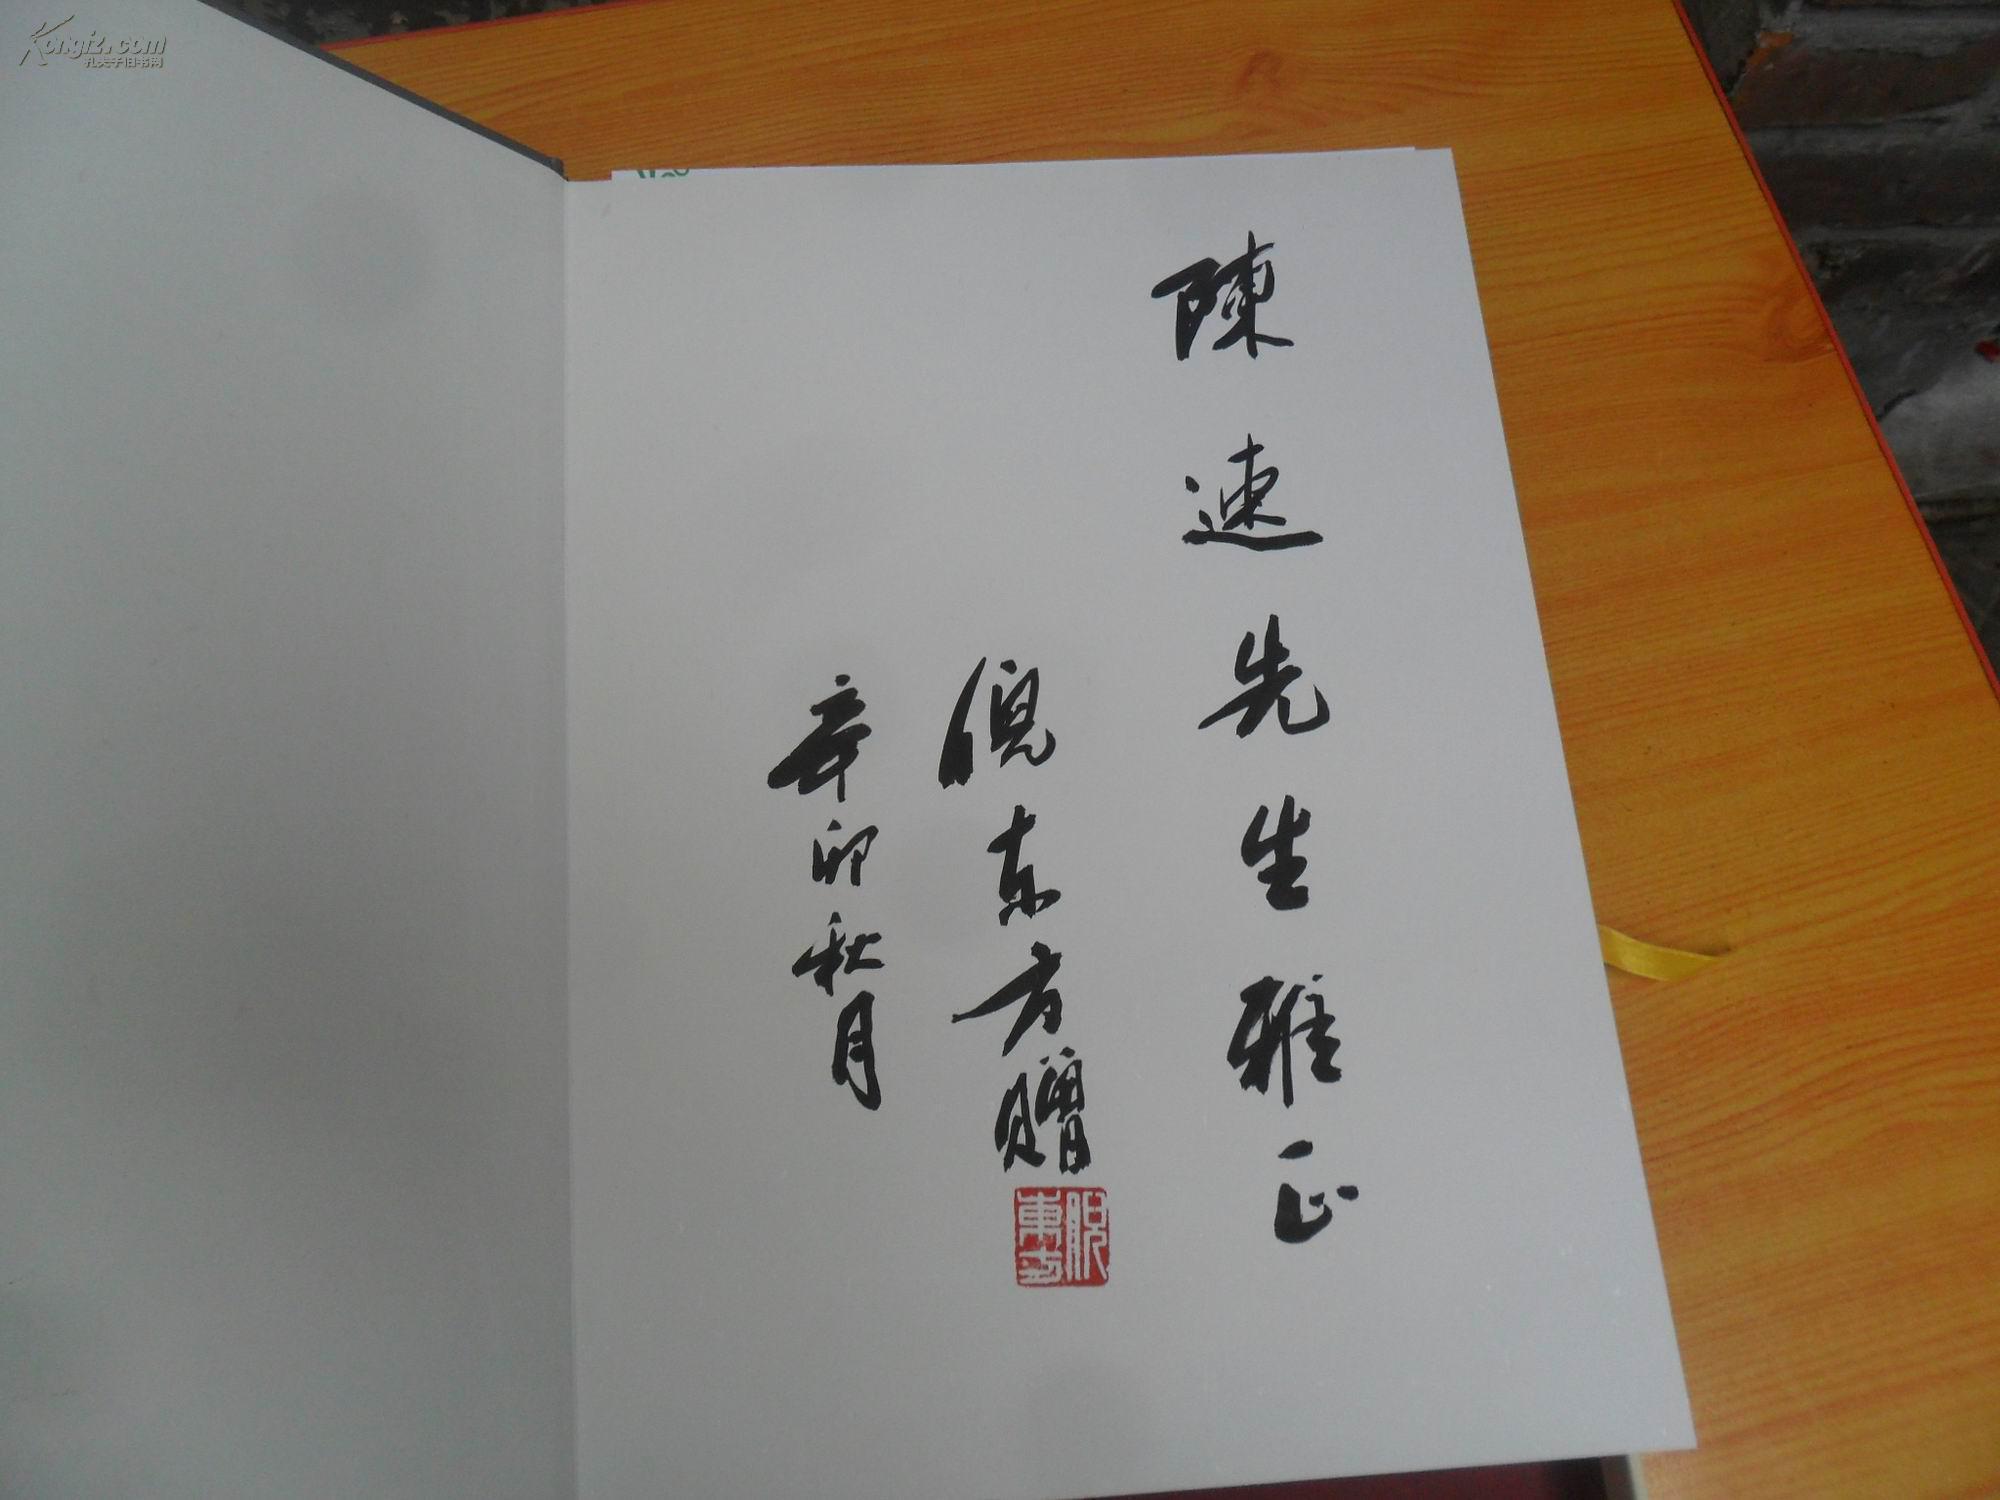 陳速先生雅正
倪东方贈
辛卯秋月
倪東方
Kongfz.com
孔夫子旧书网